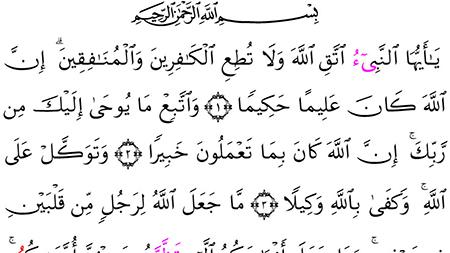 بِسْمِ ٱللَّهِ ٱلرَّحْمَٰنِ ٱلرَّحِيمِ
يَـٰأَيُّهَا ٱلنَّبِىٓءُ ٱتَّقِ ٱللَّهَ وَلَا تُطِعِ ٱلْكَـٰفِرِينَ وَٱلْمُنَـٰفِقِينَۗ إِنَّ
ٱللَّهَ كَانَ عَلِيمًا حَكِيمًا ﴿١﴾ وَٱتَّبِعْ مَا يُوحَىٰ إِلَيْكَ مِن
رَّبِّكَۚ إِنَّ ٱللَّهَ كَانَ بِمَا تَعْمَلُونَ خَبِيرًا ﴿٢﴾ وَتَوَكَّلْ عَلَى
ٱللَّهِۚ وَكَفَىٰ بِٱللَّهِ وَكِيلًا ﴿٣﴾ مَّا جَعَلَ ٱللَّهُ لِرَجُلٍ مِّن قَلْبَيْنِ